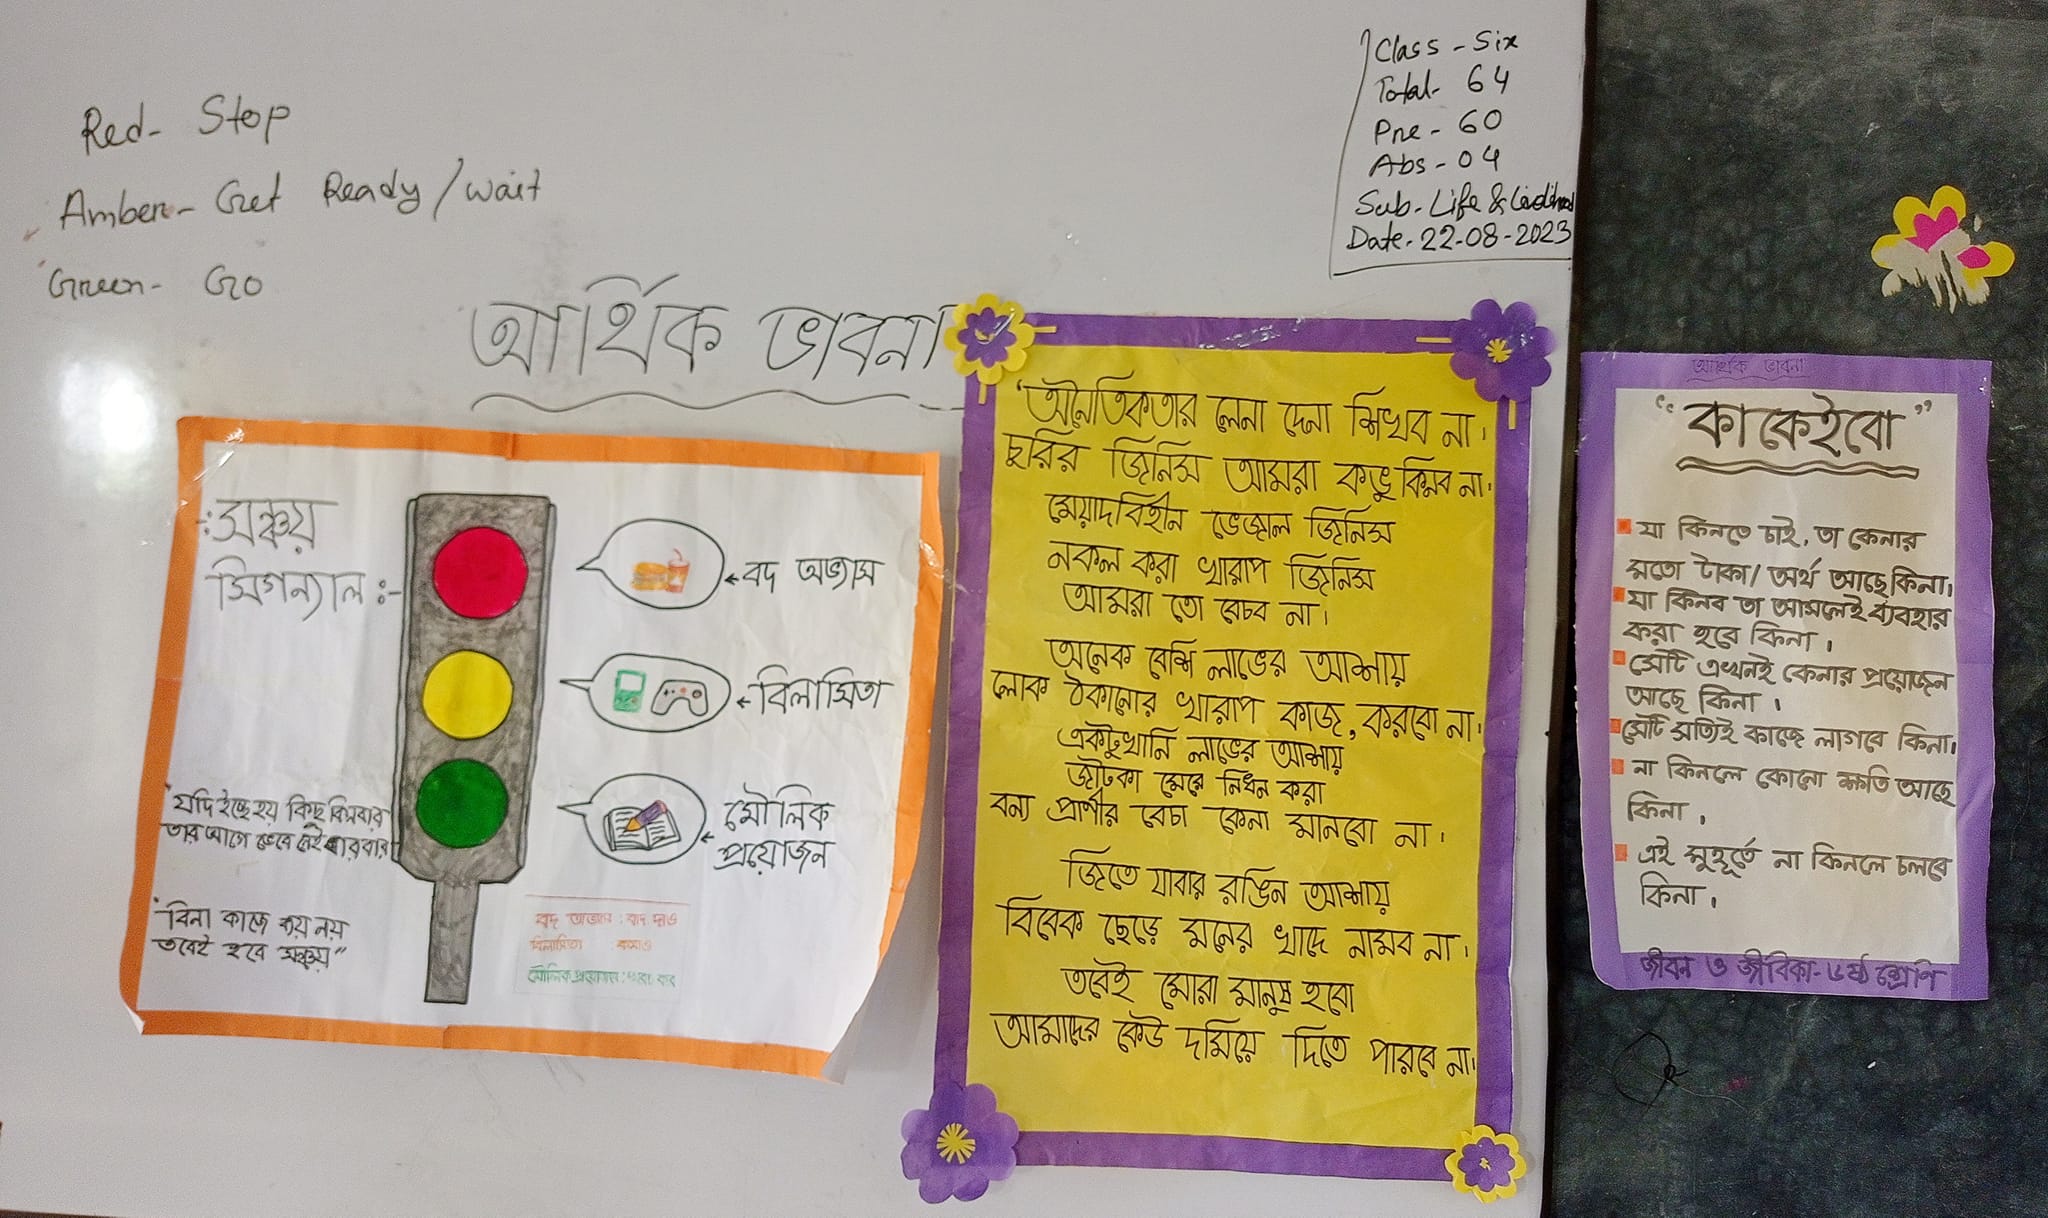 Red- Stop
Amber- Get Ready/wait
Green- Go
Class - Six
Total- 64
Pre - 60
Abs - 04
Sub- Life & Livelihood
Date- 22-08-2023
আর্থিক ভাবনা
সঞ্চয়
সিগন্যাল :-
←বদ অভ্যাস
←বিলাসিতা
←মৌলিক
প্রয়োজন
"যদি ইচ্ছে হয় কিছু কিনবার
তার আগে ভেবে নেই বারবার
"বিনা কাজে ব্যয় নয়
তবেই হবে সঞ্চয়"
বদ অভ্যাস : বাদ দাও
বিলাসিতা : কমাও
মৌলিক প্রয়োজন :
'অনৈতিকতার লেনা দেনা শিখব না।
চুরির জিনিস আমরা কভু কিনব না।
মেয়াদবিহীন ভেজাল জিনিস
নকল করা খারাপ জিনিস
আমরা তো বেচব না।
অনেক বেশি লাভের আশায়
লোক ঠকানোর খারাপ কাজ, করবো না।
একটুখানি লাভের আশায়
জাটকা মেরে নিধন করা
বন্য প্রাণীর বেচা কেনা মানবো না।
জিতে যাবার রঙিন আশায়
বিবেক ছেড়ে মনের খাদে নামব না।
তবেই মোরা মানুষ হবো
আমাদের কেউ দমিয়ে দিতে পারবে না।
আর্থিক ভাবনা
"কাকেইবো"
যা কিনতে চাই, তা কেনার
মতো টাকা/অর্থ আছে কিনা।
যা কিনব তা আসলেই ব্যবহার
করা হবে কিনা।
সেটি এখনই কেনার প্রয়োজন
আছে কিনা।
সেটি সত্যিই কাজে লাগবে কিনা।
না কিনলে কোনো ক্ষতি আছে
কিনা।
এই মুহূর্তে না কিনলে চলবে
কিনা।
জীবন ও জীবিকা- ৬ষ্ঠ শ্রেণি